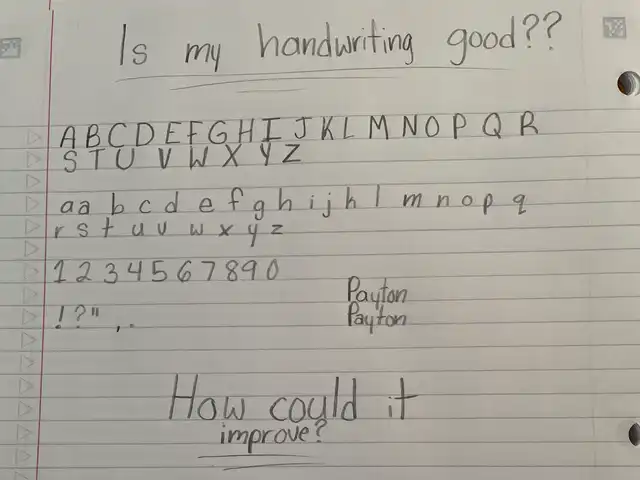 Is my handwriting good??
A B C D E F G H I J K L M N O P Q R
S T U V W X Y Z
a a b c d e f g h i j h l m n o p q
r s t u v w x y z
1 2 3 4 5 6 7 8 9 0
Payton
! ? " , .
Payton
How could it
improve?